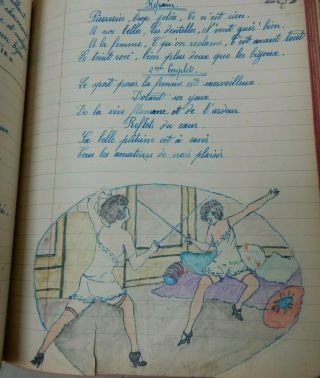 Refrain.
Pourvu, trop jolie, ce n'est rien.
A nos belles, les dentelles, il vont qu'si bien.
A la femme, c'qu'on reclame, c'est avant tout
Le teint rosé, bien plus doux que les bijoux.
2eme Couplet.
Le sport pour la femme est merveilleux.
Dotant ses yeux.
De la vive flamme et de l'ardeur
Reflets du cœur.
Sa belle plitrine est à ravir
Tous les amateurs de vrais plaisir.